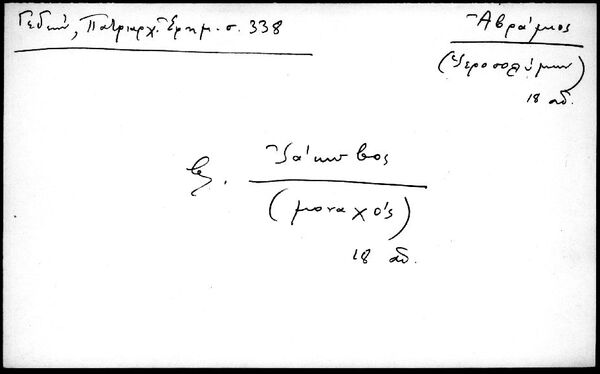 Γεδεών, Πατριαρχ. Ἐφημ. σ. 338
Ἀβράμιος
(Ἱεροσολύμων)
18 αἰ.
βλ. Ἰάκωβος
(μοναχός)
18 αἰ.